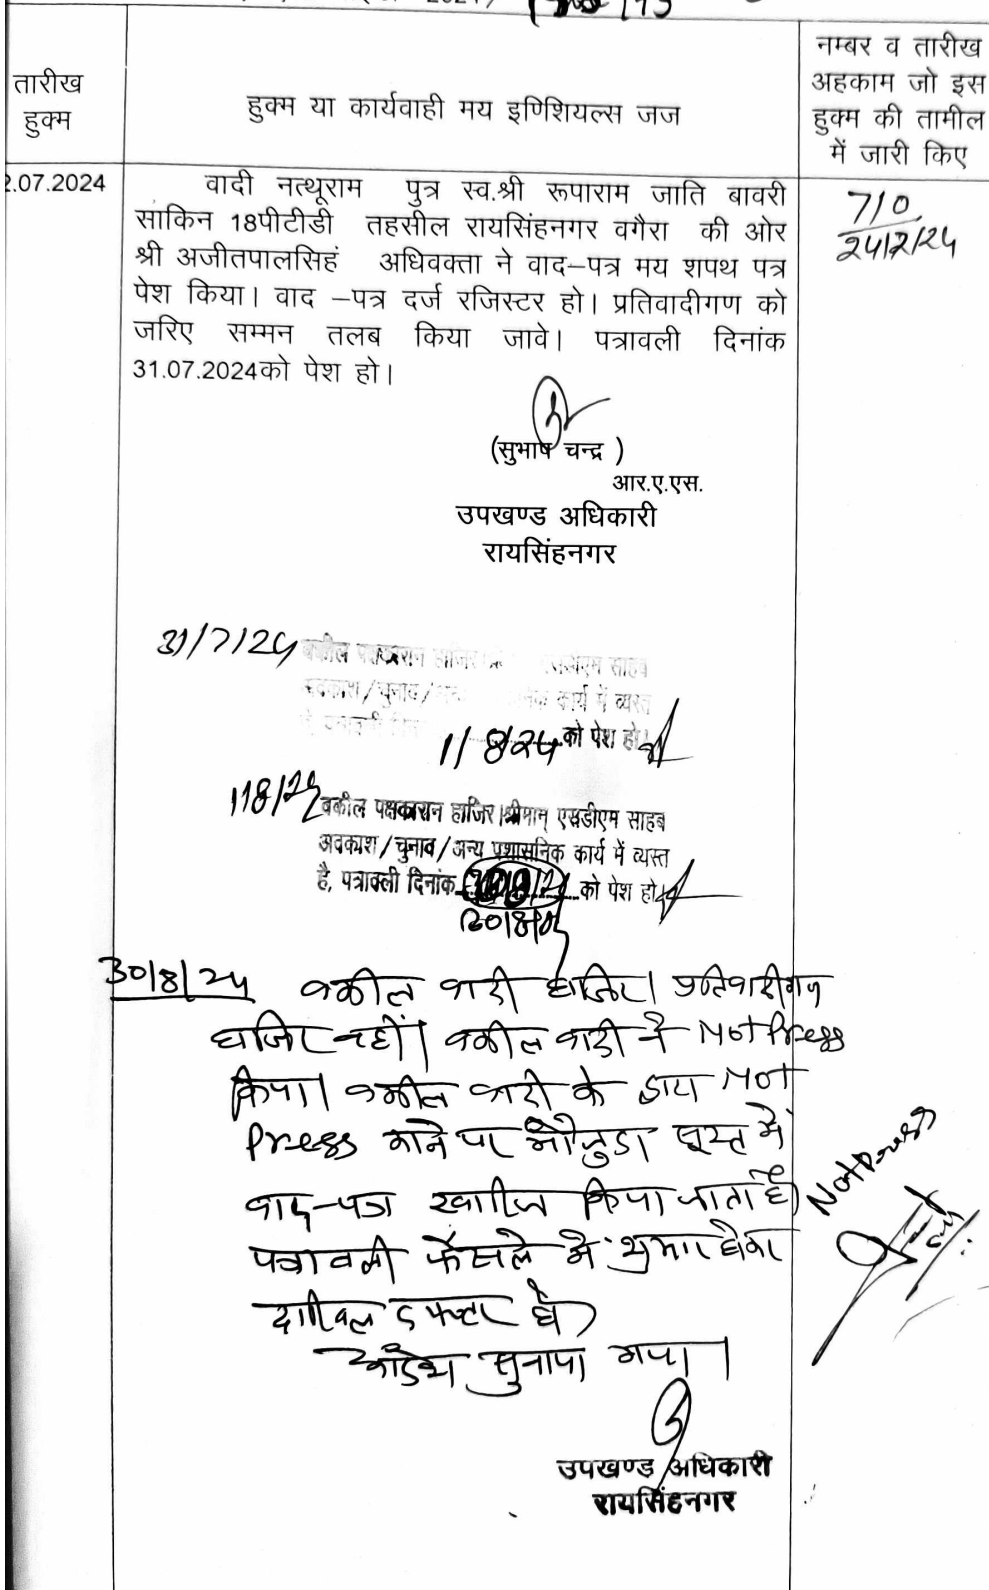 तारीख
हुक्म
हुक्म या कार्यवाही मय इणिशियल्स जज
नम्बर व तारीख
अहकाम जो इस
हुक्म की तामील
में जारी किए
2.07.2024
वादी नत्थूराम पुत्र स्व.श्री रूपाराम जाति बावरी
साकिन 18पीटीडी तहसील रायसिंहनगर वगैरा की ओर
श्री अजीतपालसिहं अधिवक्ता ने वाद–पत्र मय शपथ पत्र
पेश किया। वाद –पत्र दर्ज रजिस्टर हो। प्रतिवादीगण को
जरिए सम्मन तलब किया जावे। पत्रावली दिनांक
31.07.2024को पेश हो।
710
(सुभाष चन्द्र )
आर.ए.एस.
उपखण्ड अधिकारी
रायसिंहनगर
31/7/24 वकील पक्षकारान हाजिर एसडीएम साहब
अवकाश/चुनाव/ कार्य में व्यस्त
1/8/24 को पेश हो।
1/8/24 वकील पक्षकारान हाजिर।श्रीमान् एसडीएम साहब
अवकाश/चुनाव/अन्य प्रशासनिक कार्य में व्यस्त
है, पत्रावली दिनांक को पेश हो
30/8/24
30/8/24 वकील वादी हाजिर। प्रतिवादीगण
हाजिर नहीं। वकील वादी ने Not Press
किया। वकील वादी के द्वारा Not
Press करने पर मौजुदा सूरत में
वाद-पत्र खारीज किया जाता है।
पत्रावली फैसले में शुमार होकर
दाखिल दफ्तर हो
आदेश सुनाया गया।
Not Press
उपखण्ड अधिकारी
रायसिंहनगर